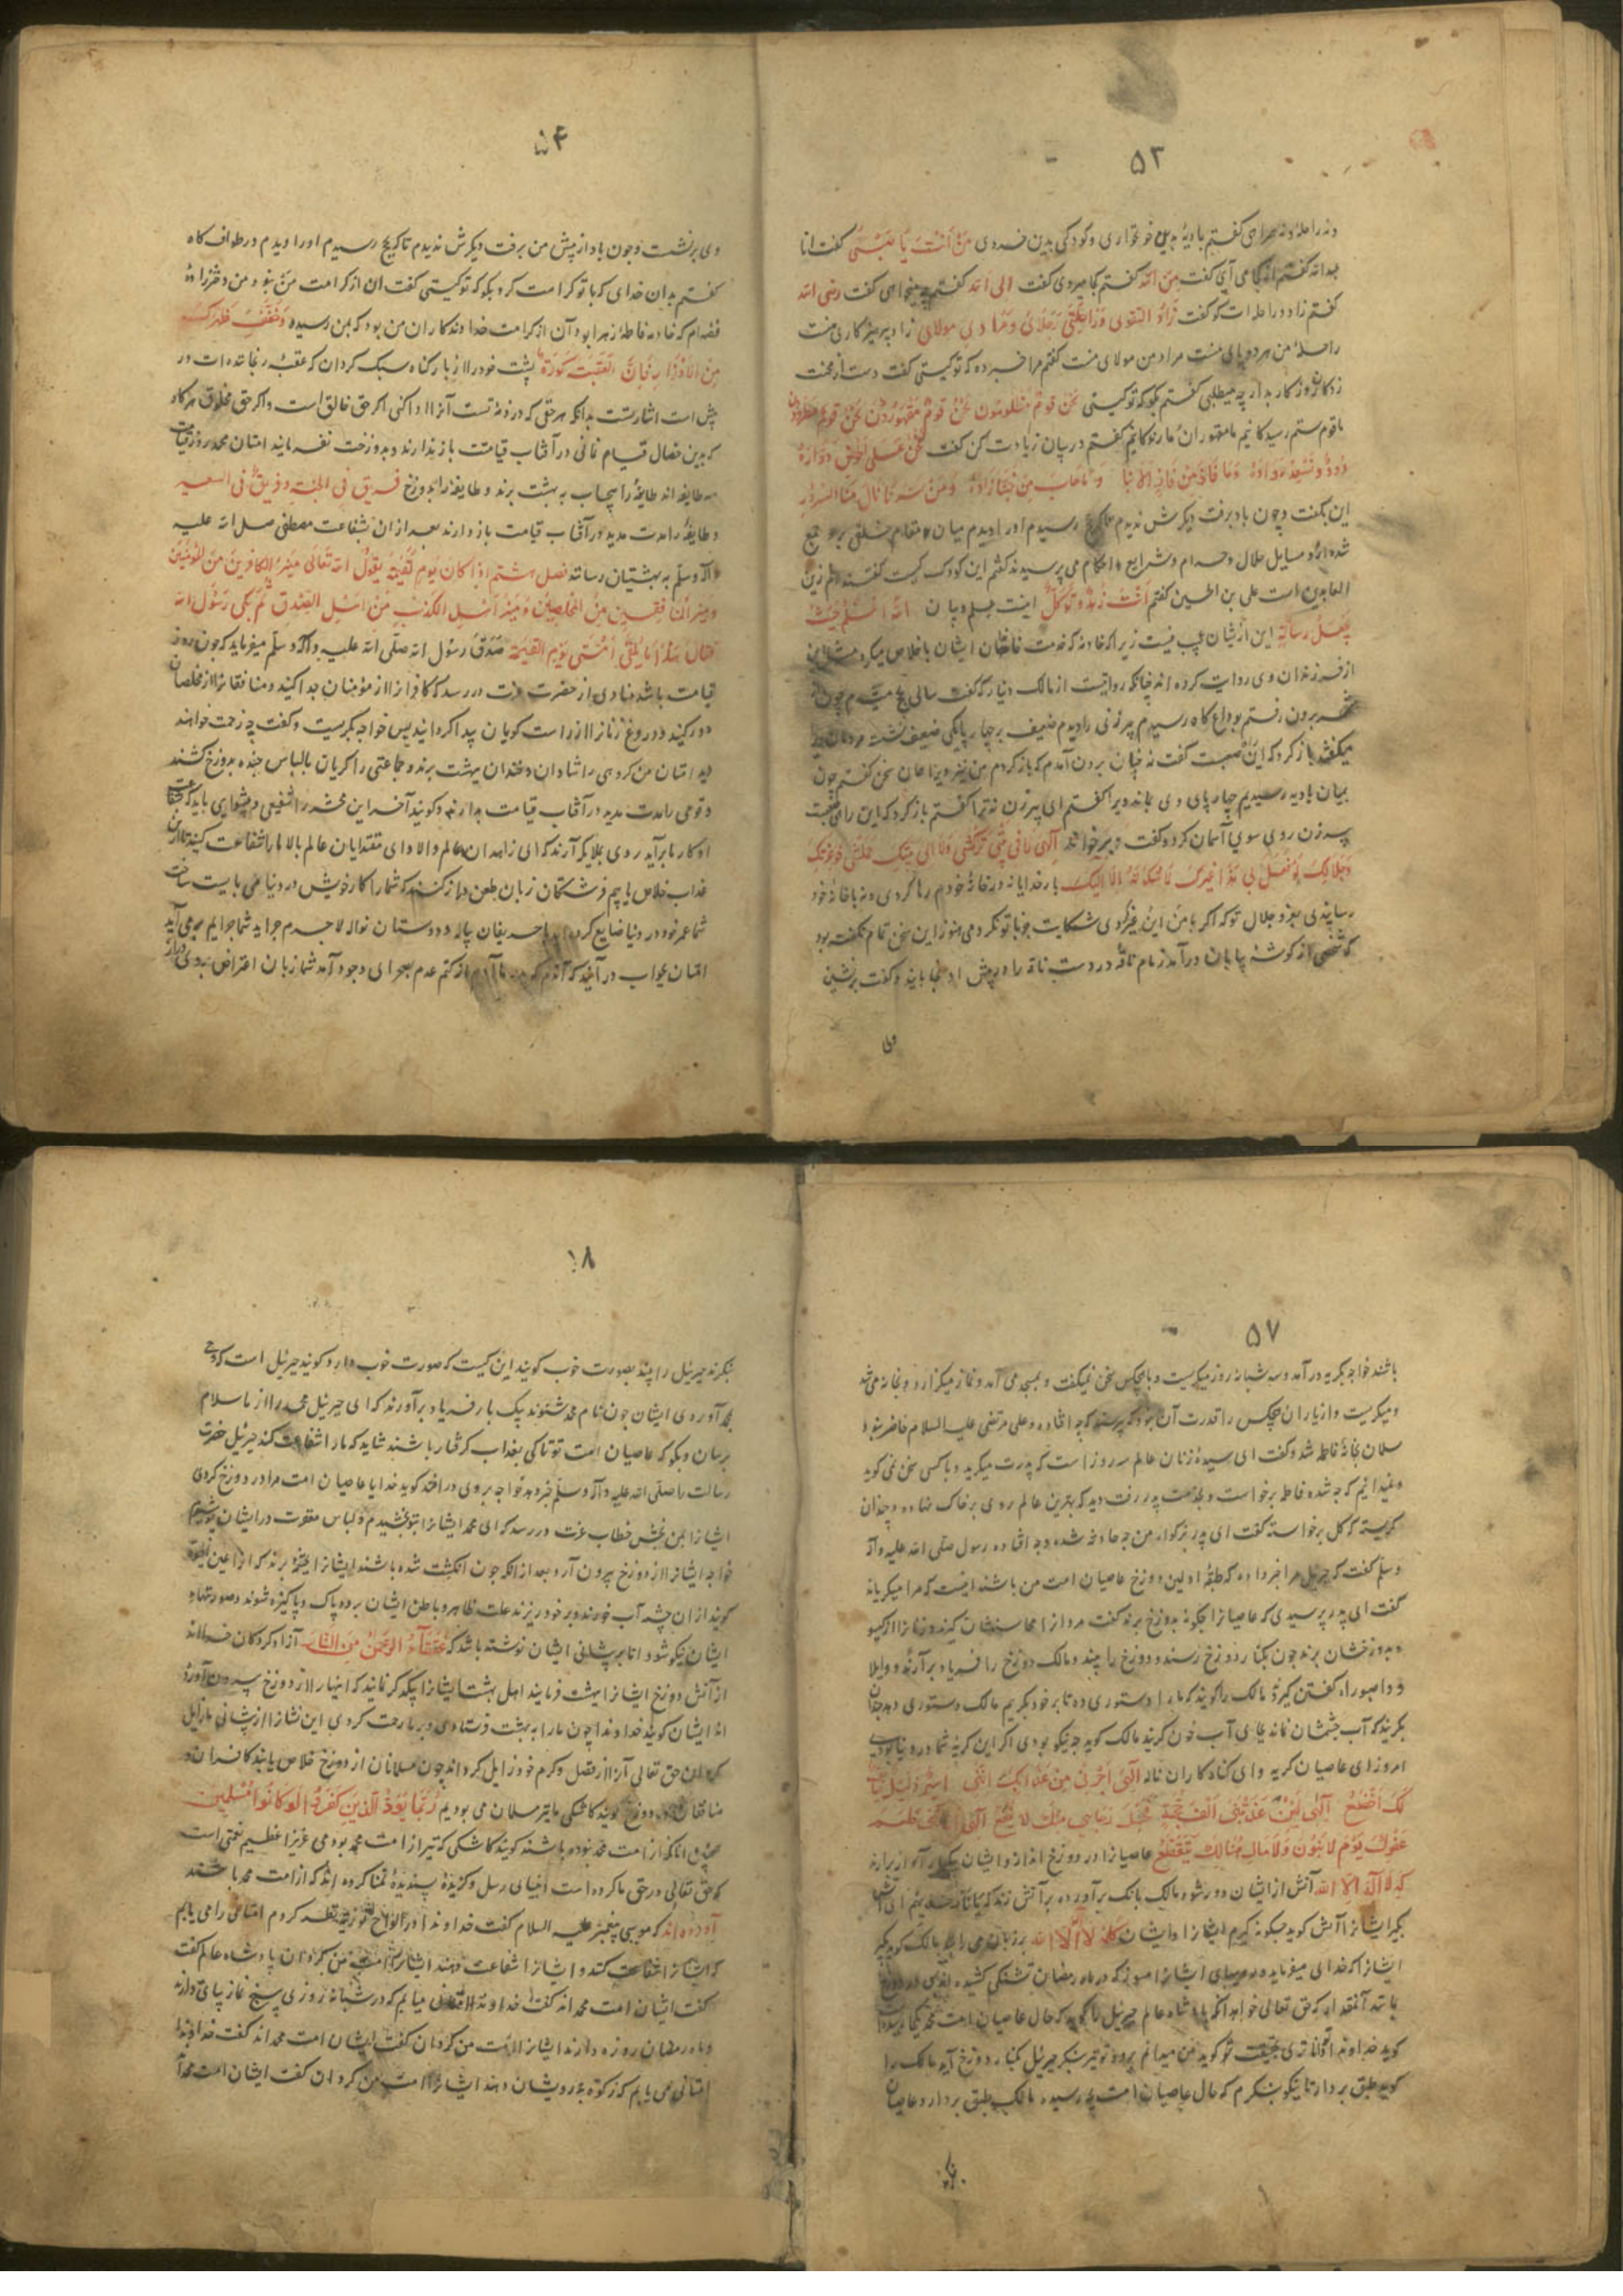 ۵۳
ونه راحله ونه همراهی کفتم بادیهٔ بدین خونخواری وکودکی بدین فردی مَنْ اَنْتَ یَا صَبِیُّ کفت انا
عبدالله کفتم از کجا می آیی کفت مِنَ الله کفتم کجا میروی کفت الی الله کفتم چه میخواهی کفت رضی الله
کفتم زاد و راحله ات کو کفت زَادِیَ التقوی وَرَاحِلَتِی رِجْلَایَ وَمُرادی مولای زاد پرهیزکاری منست
راحلهٔ من هر دو پای منست مراد من مولای منست کفتم مرا خبر ده که توکیستی کفت دست از محنت
زدکان روزکار بدار چه میطلبی کفتم بکو که توکیستی نحن قومٌ مظلومون نحنُ قومٌ مَقهورُونْ نحنُ قومٌ مطرودون
ما قوم ستم رسیدکانیم ما مقهوران کفتم در بیان زیادت کن کفت نحن علی الحوض
وَمَا فَازَ مَنْ فَازَ اِلّا بِنَا وَمَا خَابَ مَنْ حُبُّنَا زَادُهُ وَمَنْ سَرَّنَا نَالَ مِنّا السُّرُور
این بکفت وچون باد برفت دیکرش ندیدم تا بمکه رسیدم اورا دیدم میان مقام خلقی برو جمع
شده از و مسایل حلال وحرام وشرایع واحکام می پرسیدند کفتم این کودک کیست کفتند امام زین
العابدین است علی بن الحسین کفتم اَنْتَ این از ایشان عجیب نیست زیرا که خادمه که خدمت خانهٔ ایشان باخلاص میکرد
از فرزندان وی روایت کرده اند چنانکه روایتست از مالک دینار که کفت سالی بحج میشدم چون از
شهر برون رفتم بوداع کاه رسیدم پیرزنی را دیدم ضعیف بر چارپایکی ضعیف نشسته مردمان ویرا
میکفتند باز کرد که این صعبست کفت نه چنان برون آمدم که باز کردم
میان بادیه رسیدیم چارپای وی بماند ویرا کفتم ای پیرزن نه ترا کفتم باز کرد که این راه
پیرزن روی سوی آسمان کرد وکفت اِلٰهِی لَا فِی بَیْتِی تَرَکْتَنِی وَلَا اِلی بَیْتِکَ حَمَلْتَنِی فَوَعِزَّتِکَ
وَجَلَالِکَ لَوْ فَعَلَ بِی هَذَا غَیْرُکَ لَمَا شَکَوْتُهُ اِلّا اِلَیْکَ بار خدایا نه در خانهٔ خودم رها کردی ونه با خانهٔ خود
رسانیدی بعز وجلال توکه اکر با من این غیر توکردی شکایت جز با تو نکردمی هنوز این سخن تمام نکفته بود
که شخصی از کوشهٔ بیابان درآمد زمام ناقه در دست ناقه را در پیش او بخوابانید وکفت برنشین
وی
۵۴
وی برنشست وچون باد از پیش من برفت دیکرش ندیدم تا بمکه رسیدم اورا دیدم در طواف کاه
کفتم بدان خدای که با توکرامت کرد بکو که توکیستی کفت این از کرامت من نبود من دختر زادهٔ
فضه ام که خادمه فاطمهٔ زهرا بود آن از کرامت خداوندکاران من بود که بمن رسیده وَخَفِّفْ ظَهْرَکَ
مِنَ الْاَوْزَارِ فَاِنَّ الْعَقَبَةَ کَؤُودَةٌ پشت خود را از بار کناه سبک کردان که عقبهٔ در
پیش است اشارتست بدانکه هر حقی که در ذمهٔ تست آنرا ادا کنی اکر حق خالق است و اکر حق مخلوق هر کاه
که بدین خصال قیام نمائی در آفتاب قیامت باز ندارند و بدوزخت نفرمایند امتان محمد روز قیامت
سه طایفه اند طایفهٔ را بیحساب به بهشت برند و طایفهٔ را بدوزخ فریق فی الجنة وفریق فی السعیر
وطایفهٔ را مدت مدید در آفتاب قیامت باز دارند بعد از آن بشفاعت مصطفی صلی الله علیه
وآله وسلم به بهشتیان رسانند فصل بیشتم اِذَا کَانَ یَوْمُ القیٰمَةِ یَقُولُ الله تعالی مَیِّزُوا الکافرینَ مِنَ المؤمنین
وَمَیِّزُوا المنافقین مِنَ المخلصین وَمَیِّزُوا اَهْلِ الکَذِبِ مِنْ اَهْلِ الصِّدْقِ ثُمَّ بَکی رَسُول الله
فقال هٰذا مَا یَلْقَی اُمَّتی یَوْمِ القیمة صَدَقَ رَسُول الله صلّی الله علیه وآله وسلّم میفرماید که چون روز
قیامت باشد منادی از حضرت عزت دررسد که کافرانرا از مؤمنان جدا کنید ومنافقانرا از مخلصان
دور کنید ودروغ زنانرا از راست کویان پیدا کردانید پس خواجه بکریست وکفت چه زحمت خواهند
دید امتان من کروهی را شادان وخندان ببهشت برند وجماعتی را کریان بالباس بدوزخ کشند
وقومی را مدت مدید در آفتاب قیامت بدارند وکویند آخر این محشر را شفیعی وپیشوایی باید که
او کار ما برآید روی بملایکه آرند که ای زاهدان عالم والا وای مقتدایان عالم بالا مارا شفاعت کنید تا از این
عذاب خلاص یابیم فرشتکان زبان طعن دراز کنند که شما را کار خویش در دنیا می بایست ساخت
شما عمر خود در دنیا ضایع کرده اید حریفان پیاله و دوستان نواله لاجرم
امتان بجواب درآیند که از کتم عدم بصحرای وجود آمد شما زبان اعتراض
۵۷
باشند خواجه بکریه درآمد وسه شبانه روز میکریست وباهیچکس سخن نمیکفت و بمسجد می آمد ونماز میکزارد وبخانه می شد
ومیکریست واز یاران هیچکس را قدرت آن نبود که پرسد که چه افتاده وعلی مرتضی علیه السلام حاضر نبود
سلمان بخانهٔ فاطمه شد وکفت ای سیدهٔ زنان عالم سه روز است که پدرت میکرید وباکس سخن نمی کوید
ونمیدانیم که چه شده فاطمه برخواست وبخدمت پدر رفت دید که بهترین عالم روی بر خاک نهاده وچندان
کریسته که کل برخواسته کفت ای پدر بزرکوار من چه حادثه شده وچه افتاده رسول صلّی الله علیه وآله
وسلم کفت که جبریل مرا خبر داده که طبقهٔ اولین دوزخ عاصیان امت من باشند اینست که مرا میکریاند
کفت ای پدر پرسیدی که عاصیانرا چکونه بدوزخ برند کفت مردانرا محاسنشان کیرند وزنانرا از کیسو
وبدوزخشان برند چون بکنار دوزخ رسند ودوزخ را بینند ومالک دوزخ را فریاد برآرند وواویلا
وواثبوراه کفتن کیرند مالک را کویند که مارا دستوری ده تا بر خود بکریم مالک دستوری دهد چندان
بکریند که آب چشمشان نماند بجای آب خون کریند مالک کوید چه نیکو بودی اکر این کریه شما در دنیا بودی
امروز ای عاصیان کریه وای کناه کاران ناله اِلٰهی اَجِرْنی مِنْ عَذَابِکَ اِنَّنی اَسیرٌ ذَلیلٌ خائف
لَکَ اَخْضَعُ اِلٰهی لَئِنْ عَذَّبْتَنی اَلْفَ حِجَّةٍ فَحَبْلُ رَجَائی مِنْکَ لَا یَتَقَطَّعُ اِلٰهی اَذِقْنی طَعْمَ
عَفْوِکَ یَوْمَ لَا بَنُونَ وَلَا مَالٌ هُنَالِکَ یَنْفَعُ عاصیانرا در دوزخ اندازند ایشان بیکبار آواز برآرند
که لا اله الا الله آتش از ایشان دور شود مالک بانک برآورد بر آتش زند که ای آتش
بکیر ایشانرا آتش کوید چکونه کیرم ایشانرا وایشان کلمهٔ لا اله الا الله بر زبان می رانند مالک کوید بکیر
ایشانرا که خدای میفرماید ایشانرا مسوز که در ماه رمضان تشنکی کشیده اند در دوزخ
باشند آنقدر که حق تعالی خواهد آنکه پادشاه عالم جبرئیل را کوید که حال عاصیان امت محمد بکجا رسید
کوید خداوندا تو داناتری بحقیقت توکوید من میدانم برو و تو نیز بنکر جبرئیل بکنار دوزخ آید مالک را
کوید طبق بردار تا نیکو بنکرم که حال عاصیان امت بچه رسیده مالک طبق بردارد وعاصیان
۵۸
بنکرند جبرئیل را بینند بصورت خوب کویند این کیست که صورت خوب دارد کویند جبرئیل است که وحی
بمحمد آوردی ایشان چون نام محمد شنوند بیک بار فریاد برآورند که ای جبرئیل محمد را از ما سلام
برسان وبکو که عاصیان امت تو تا کی بعذاب کرفتار باشند شاید که مارا شفاعت کند جبرئیل حضرت
رسالت را صلّی الله علیه وآله وسلّم خبر دهد خواجه بروی درافتد کوید خدایا عاصیان امت مرا در دوزخ کردی
ایشانرا بمن بخش خطاب عزت دررسد که ای محمد ایشانرا بتو بخشیدم ولباس مغفرت در ایشان پوشیدم
خواجه ایشانرا از دوزخ بیرون آرد بعد از آنکه چون انکشت شده باشند ایشانرا بچشمهٔ برند که آنرا عین الحیوة
کویند از آن چشمه آب خورند وبر خود ریزند علت ظاهر وباطن ایشان برود پاک وپاکیزه شوند وصورتهای
ایشان نیکو شود اما بر پیشانی ایشان نوشته باشد که عُتَقَاءُ الرَّحْمٰنِ مِنَ النَّار آزاد کردکان خدااند
از آتش دوزخ ایشانرا ببهشت فرمایند اهل بهشت ایشانرا بیکدیکر نمایند که اینهارا از دوزخ بیرون آورده
اند ایشان کویند خداوندا چون مارا به بهشت فرستادی وبر ما رحمت کردی این نشانرا از پیشانی ما زایل
کردان حق تعالی آنرا از فضل وکرم خود زایل کرداند چون مسلمانان از دوزخ خلاص یابند کافران و
منافقان در دوزخ کویند کاشکی ما نیز مسلمان می بودیم رُبَمَا یَوَدُّ الَّذینَ کَفَرُوا لَوْ کَانُوا مُسْلِمین
آنانکه از امت محمد نبوده باشند کویند کاشکی که نیز از امت محمد بودمی عزیزا عظیم نعمتی است
که حق تعالی در حق ما کرده است انبیای رسل وکزیدهٔ پسندیدهٔ تمنا کرده اند که از امت محمد باشند
آورده اند که موسی پیغمبر علیه السلام کفت خداوندا در الواح توریة نظر کردم امتانی را می یابم
که ایشانرا شفاعت کنند وایشانرا شفاعت دهند ایشانرا امت من کردان پادشاه عالم کفت
کفت ایشان امت محمد اند کفت خداوندا امتانی میابم که در شبانه روزی پنج نماز بپای دارند
وماه رمضان روزه دارند ایشانرا امت من کردان کفت ایشان امت محمد اند کفت خداوندا
امتانی می یابم که زکوة بدرویشان دهند ایشانرا امت من کردان کفت ایشان امت محمد اند